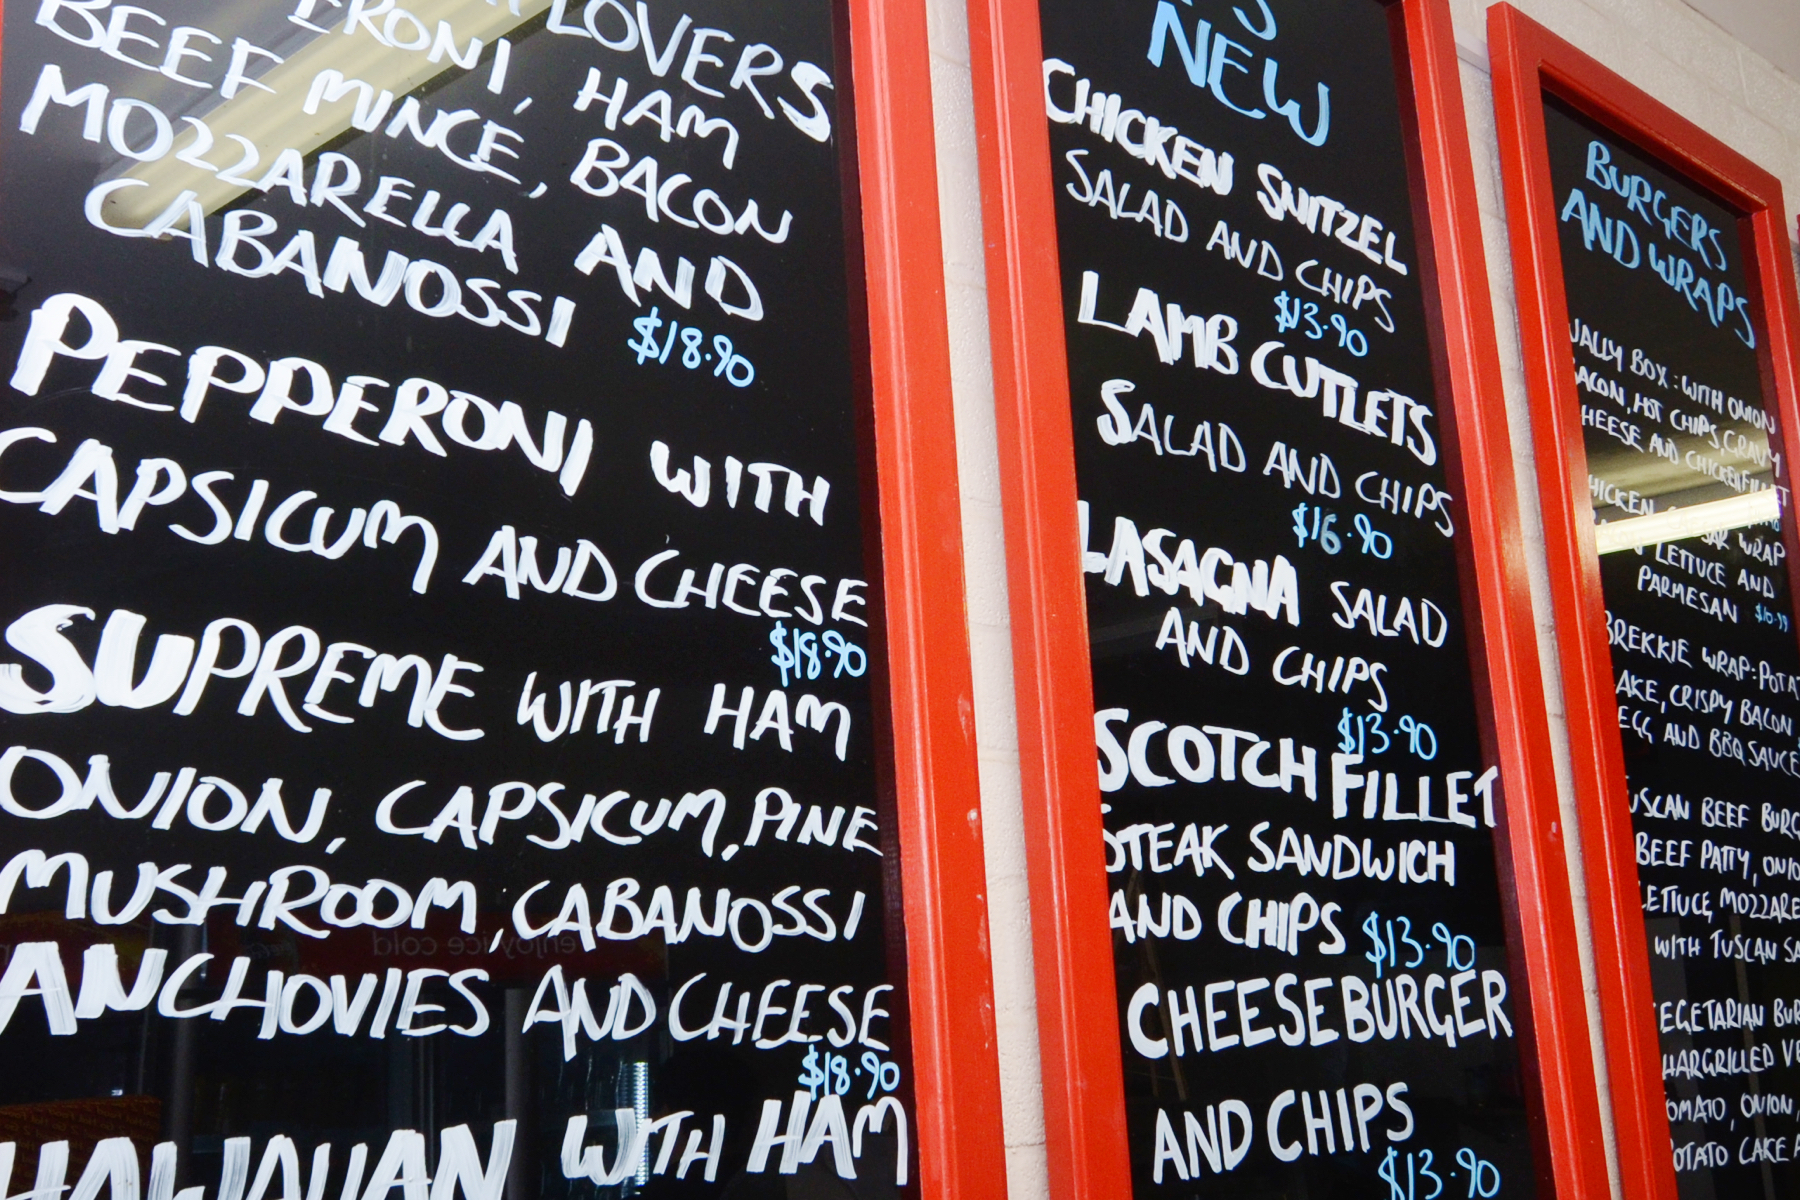 LOVERS
HAM
BEEF MINCE, BACON
MOZZARELLA AND
CABANOSSI $18.90
PEPPERONI WITH
CAPSICUM AND CHEESE
$18.90
SUPREME WITH HAM
ONION, CAPSICUM, PINE
MUSHROOM, CABANOSSI
ANCHOVIES AND CHEESE
$18.90
HAWAIIAN WITH HAM
NEW
CHICKEN SNITZEL
SALAD AND CHIPS
$13.90
LAMB CUTLETS
SALAD AND CHIPS
$16.90
LASAGNA SALAD
AND CHIPS
$13.90
SCOTCH FILLET
STEAK SANDWICH
AND CHIPS $13.90
CHEESEBURGER
AND CHIPS
$13.90
BURGERS
AND WRAPS
WALLY BOX: WITH ONION
BACON, HOT CHIPS, GRAVY
CHEESE AND CHICKEN FILLET
CHICKEN
WRAP
LETTUCE AND
PARMESAN
BREKKIE WRAP: POTA
CAKE, CRISPY BACON
EGG AND BBQ SAUCE
TUSCAN BEEF BURG
BEEF PATTY, ONIO
LETTUCE, MOZZARE
WITH TUSCAN SA
VEGETARIAN BUR
CHARGRILLED VE
TOMATO, ONION,
POTATO CAKE